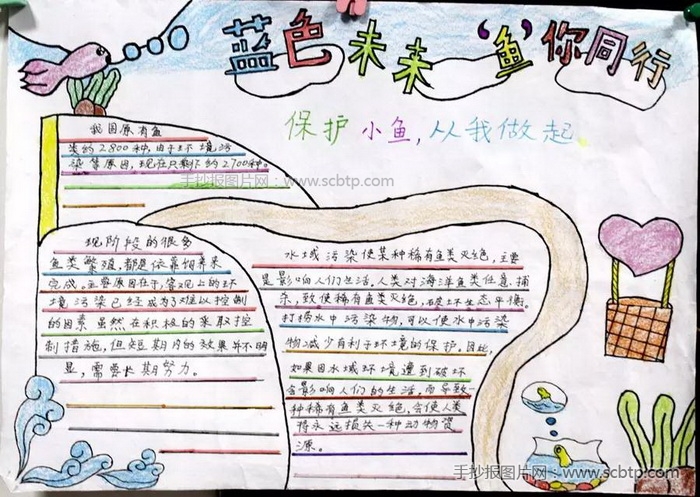 蓝色未来'鱼'你同行
保护小鱼,从我做起。
我国原有鱼
类约2800种,由于环境污
染等原因,现在只剩下约2700种。
手抄报图片网:www.scbtp.com
现阶段的很多
鱼类繁殖,都是依靠饲养来
完成,主要原因在于,客观上的环
境污染已经成为了难以控制
的因素虽然在积极的采取控
制措施,但短期内的效果并不明
显,需要长期努力。
水域污染使某种稀有鱼类灭绝,主要
是影响人们生活。人类对海洋鱼类任意捕
杀,致使稀有鱼类灭绝,破坏生态平衡。
打捞水中污染物,可以使水中污染
物减少有利于环境的保护。因此,
如果因水域环境遭到破坏
会影响人们的生活,而导致一
种稀有鱼类灭绝,会使人类
将永远损失一种动物资
源。
手抄报图片网:www.scbtp.com